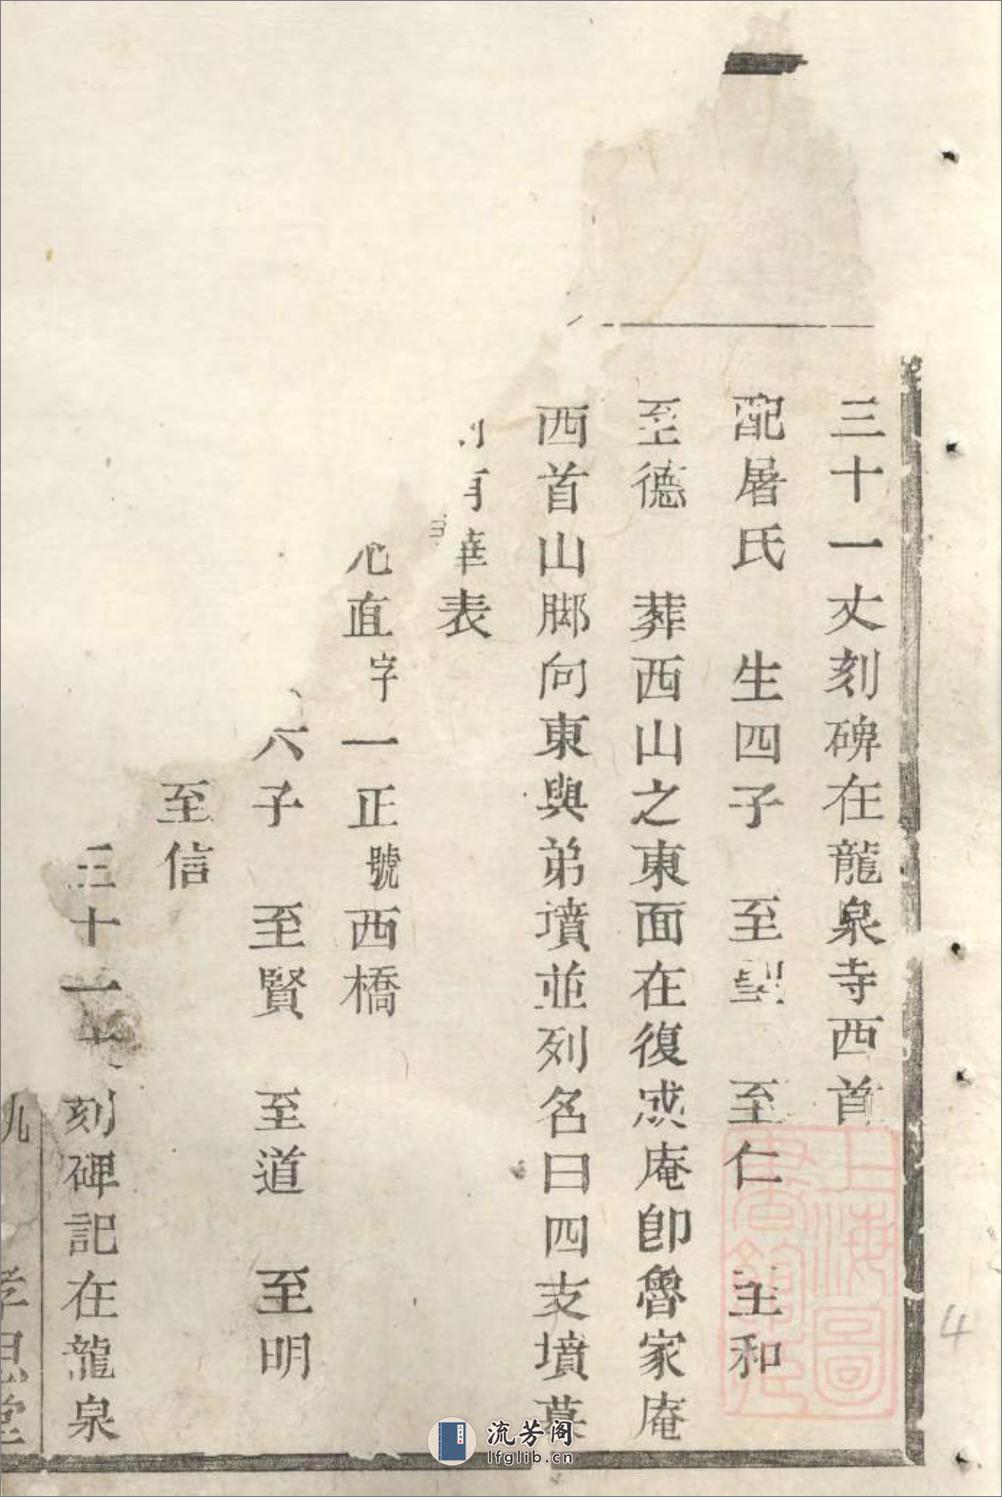 三十一丈刻碑在龍泉寺西首
配屠氏　生四子　至聖　至仁　至和
至德　葬西山之東面在復成庵卽魯家庵
西首山脚向東與弟墳並列名曰四支墳墓
有華表
直字一正號西橋
六子　至賢　至道　至明
至信
三十一丈刻碑記在龍泉
九　孝思堂
上海圖書館藏
4
流芳阁
lfglib.cn